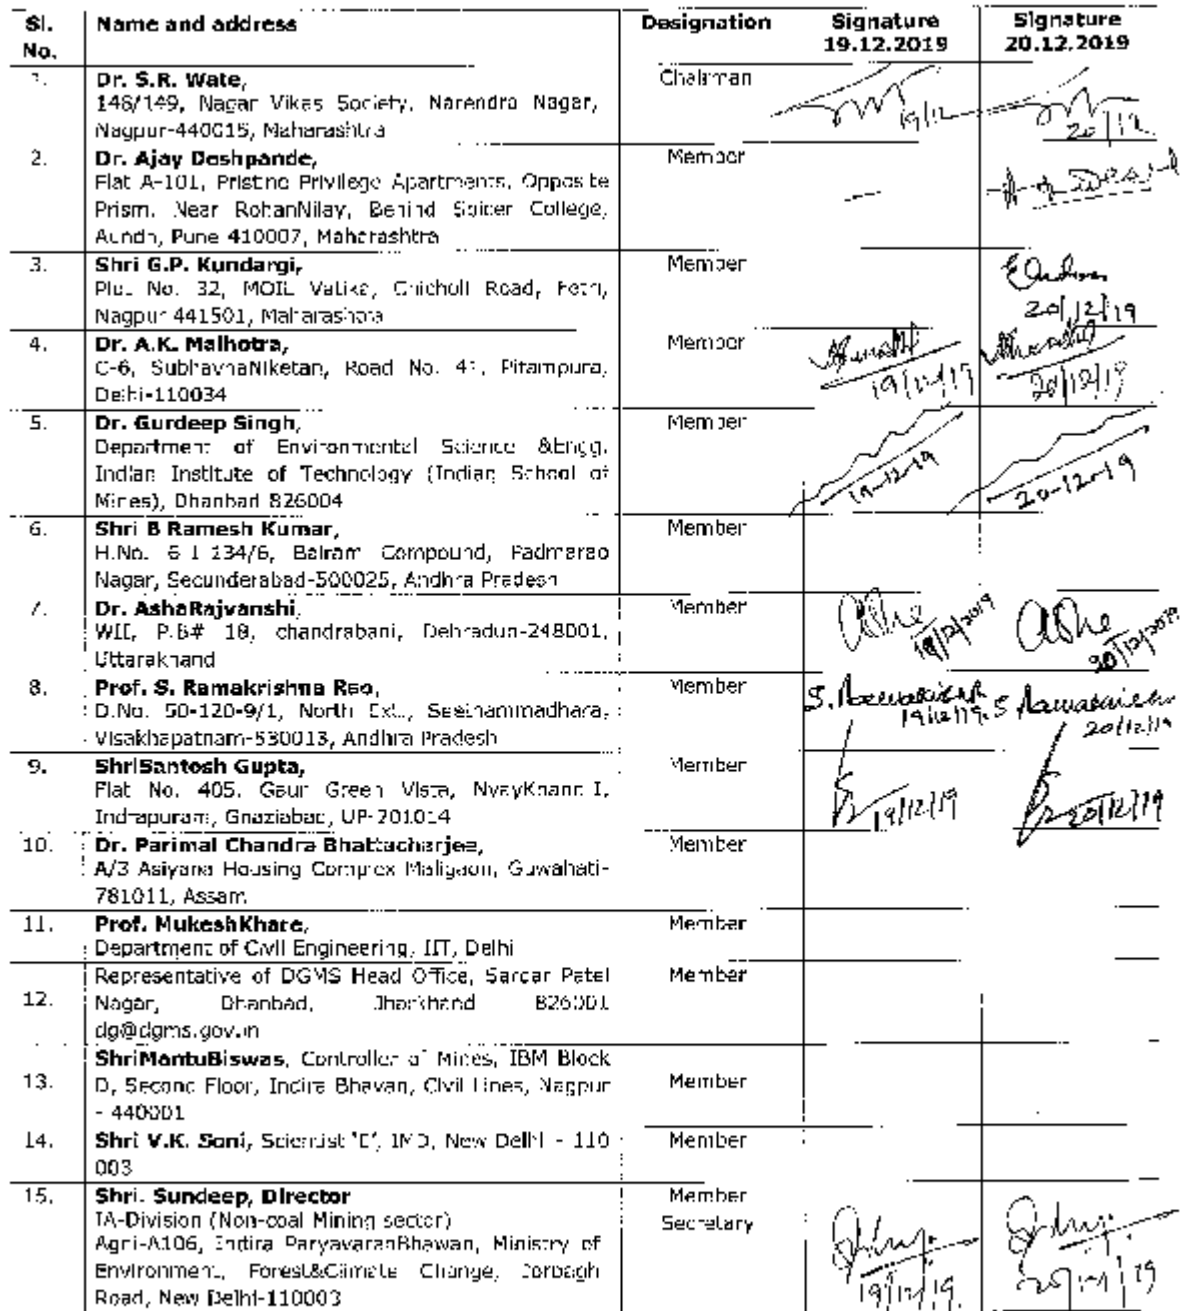 Sl. No. Name and address Designation Signature 19.12.2019 Signature 20.12.2019
1. Dr. S.R. Wate, Chairman
148/149, Nagar Vikas Society, Narendra Nagar, 19/12 20/12
Nagpur-440015, Maharashtra
2. Dr. Ajay Deshpande, Member
Flat A-101, Pristine Privilege Apartments, Opposite
Prism, Near RohanNilay, Behind Spicer College,
Aundh, Pune 410007, Maharashtra
3. Shri G.P. Kundargi, Member
Plot No. 32, MOIL Vatika, Chicholi Road, Fetri,
Nagpur 441501, Maharashtra 20/12/19
4. Dr. A.K. Malhotra, Member
C-6, SubhavnaNiketan, Road No. 41, Pitampura,
Delhi-110034 19/12/19 20/12/19
5. Dr. Gurdeep Singh, Member
Department of Environmental Science &Engg.
Indian Institute of Technology (Indian School of 19-12-19 20-12-19
Mines), Dhanbad 826004
6. Shri B Ramesh Kumar, Member
H.No. 6-1-134/6, Balram Compound, Padmarao
Nagar, Secunderabad-500025, Andhra Pradesh
7. Dr. AshaRajvanshi, Member
WII, P.B# 18, chandrabani, Dehradun-248001, 19/12/2019 20/12/2019
Uttarakhand
8. Prof. S. Ramakrishna Rao, Member
D.No. 50-120-9/1, North Ext., Seethammadhara, 19/12/19 20/12/19
Visakhapatnam-530013, Andhra Pradesh
9. ShriSantosh Gupta, Member
Flat No. 405, Gaur Green Vista, NyayKhand-I,
Indrapuram, Ghaziabad, UP-201014 19/12/19 20/12/19
10. Dr. Parimal Chandra Bhattacharjee, Member
A/3 Asiyana Housing Complex Maligaon, Guwahati-
781011, Assam
11. Prof. MukeshKhare, Member
Department of Civil Engineering, IIT, Delhi
12. Representative of DGMS Head Office, Sardar Patel Member
Nagar, Dhanbad, Jharkhand 826001
dg@dgms.gov.in
13. ShriMantuBiswas, Controller of Mines, IBM Block Member
D, Second Floor, Indira Bhavan, Civil Lines, Nagpur
- 440001
14. Shri V.K. Soni, Scientist 'E', IMD, New Delhi - 110 Member
003
15. Shri. Sundeep, Director Member
IA-Division (Non-coal Mining sector) Secretary
Agni-A106, Indira ParyavaranBhawan, Ministry of
Environment, Forest&Climate Change, Jorbagh
Road, New Delhi-110003 19/12/19